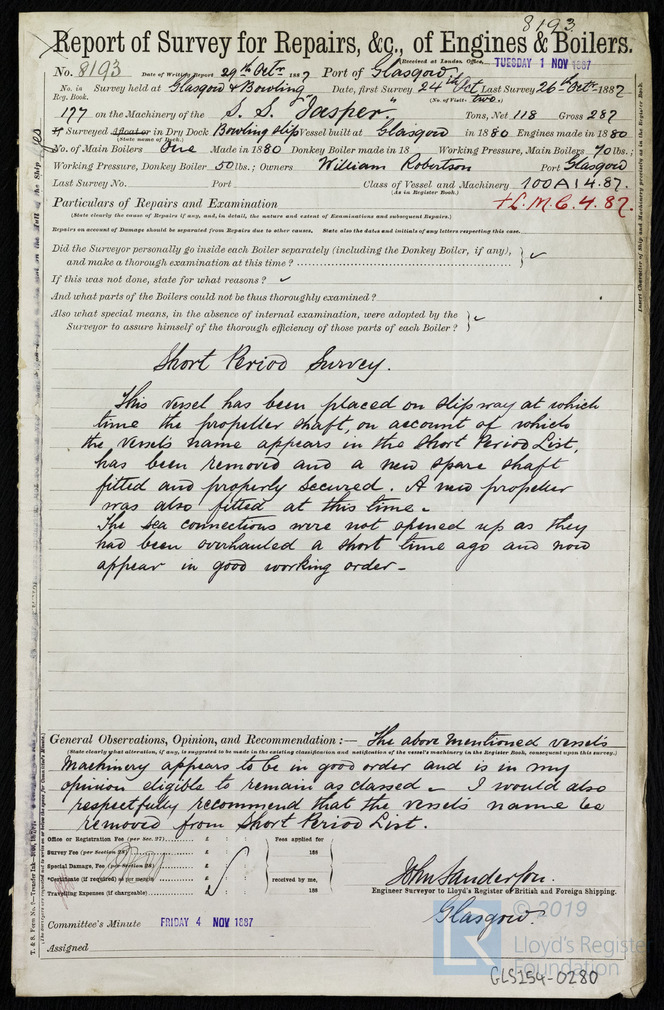 8193
Report of Survey for Repairs, &c., of Engines & Boilers.
Received at London Office, TUESDAY 1 NOV 1887
No. 8193 Date of Writing Report 29th Octr 1887 Port of Glasgow
No. in Reg. Book. Survey held at Glasgow & Bowling Date, first Survey 24th Oct Last Survey 26th Octr 1887
(No. of Visits two.)
177 on the Machinery of the S. S. "Jasper" Tons, Net 118 Gross 287
If Surveyed Afloat or in Dry Dock Bowling slip Vessel built at Glasgow in 1880 Engines made in 1880
(State name of Dock.)
No. of Main Boilers One Made in 1880 Donkey Boiler made in 18 Working Pressure, Main Boilers 70 lbs.;
Working Pressure, Donkey Boiler 50 lbs.; Owners William Robertson Port Glasgow
Last Survey No. Port Class of Vessel and Machinery 100A1 4.87.
(As in Register Book.)
Particulars of Repairs and Examination +L.M.C. 4.87.
(State clearly the cause of Repairs if any, and, in detail, the nature and extent of Examinations and subsequent Repairs.)
Repairs on account of Damage should be separated from Repairs due to other causes. State also the dates and initials of any letters respecting this case.
Did the Surveyor personally go inside each Boiler separately (including the Donkey Boiler, if any),
and make a thorough examination at this time?
If this was not done, state for what reasons?
And what parts of the Boilers could not be thus thoroughly examined?
Also what special means, in the absence of internal examination, were adopted by the
Surveyor to assure himself of the thorough efficiency of those parts of each Boiler?
Short Period Survey.
This vessel has been placed on slipway at which
time the propeller shaft, on account of which
the vessels name appears in the Short Period List,
has been removed and a new spare shaft
fitted and properly secured. A new propeller
was also fitted at this time.
The sea connections were not opened up as they
had been overhauled a short time ago and now
appear in good working order -
General Observations, Opinion, and Recommendation :— The above mentioned vessels
(State clearly what alteration, if any, is suggested to be made in the existing classification and notification of the vessel's machinery in the Register Book, consequent upon this survey.)
Machinery appears to be in good order and is in my
opinion eligible to remain as classed - I would also
respectfully recommend that the vessels name be
removed from Short Period List.
Office or Registration Fee (per Sec. 27) £ : : Fees applied for
Survey Fee (per Section 28) £ : : 188
Special Damage, Fee (per Section 28) £ : :
*Certificate (if required) as per margin £ : : received by me,
Travelling Expenses (if chargeable) £ : : 188
John Sanderson.
Engineer Surveyor to Lloyd's Register of British and Foreign Shipping.
Glasgow.
Committee's Minute FRIDAY 4 NOV 1887
Assigned
© 2019
Lloyd's Register
Foundation
GLS154-0280